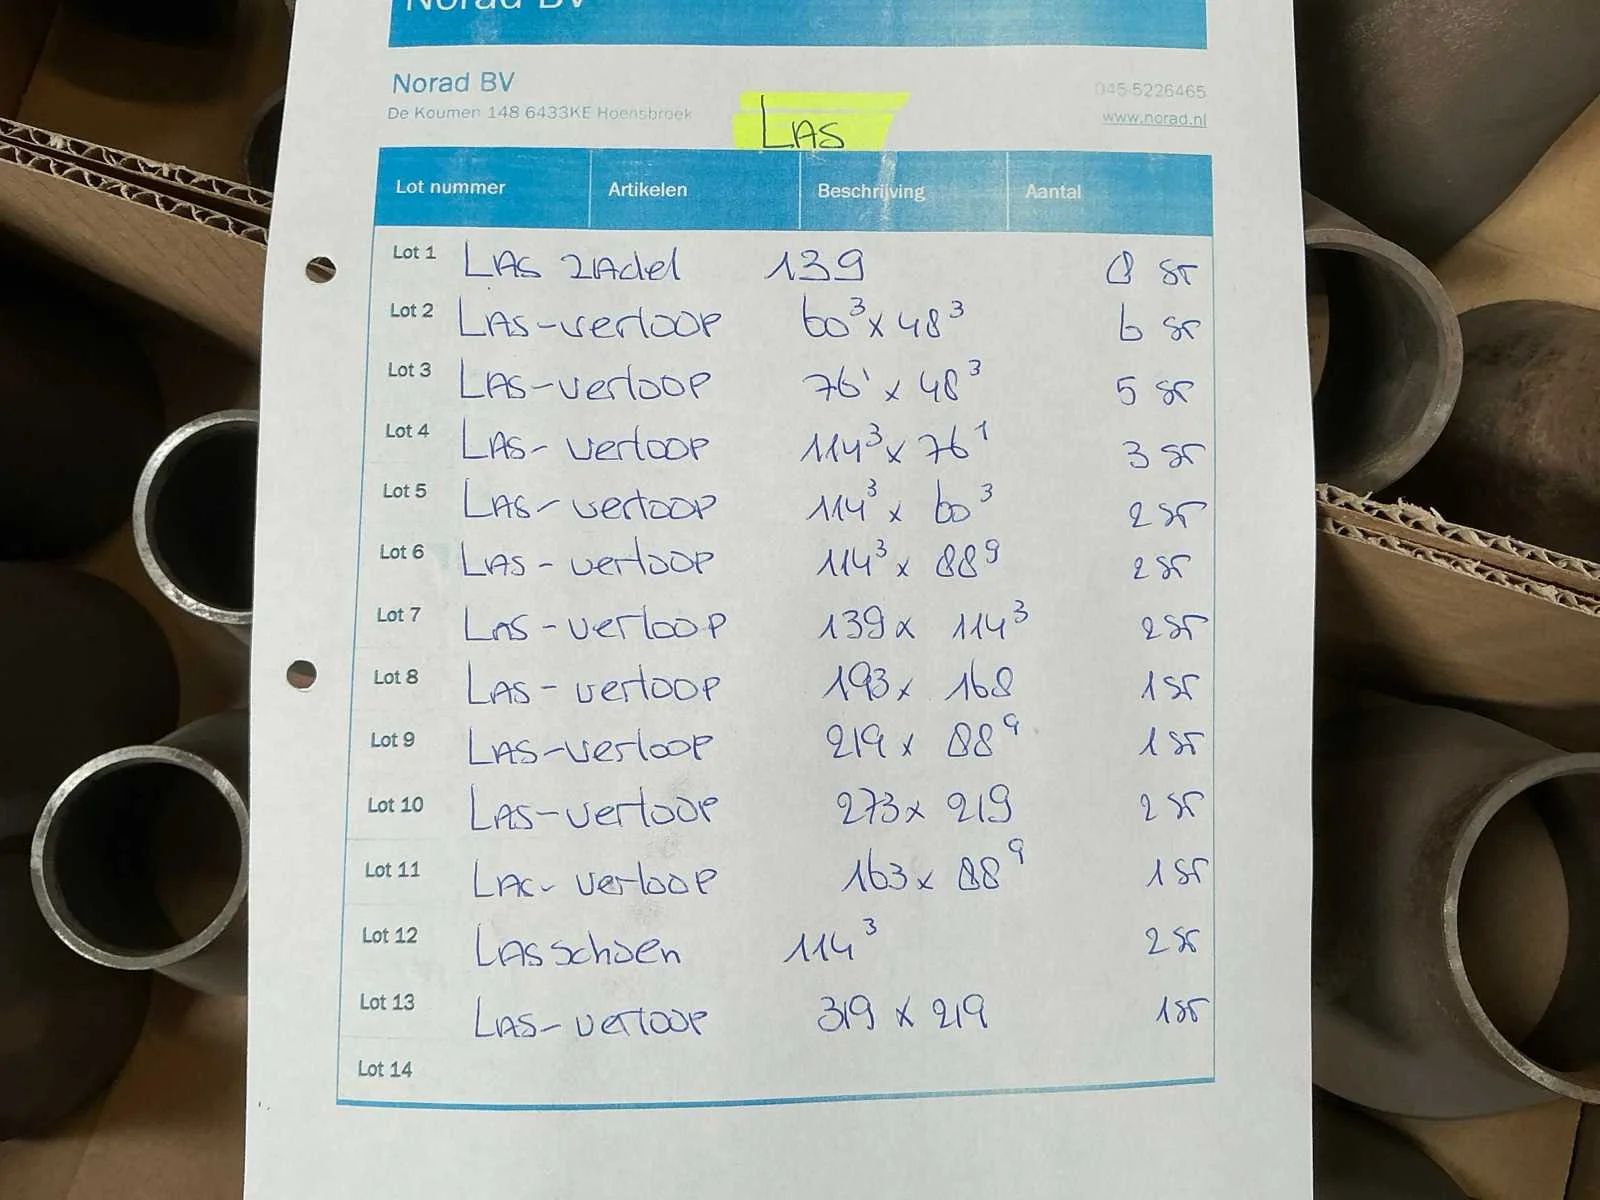 Norad BV
Norad BV
De Koumen 148 6433KE Hoensbroek
045-5226465
www.norad.nl
LAS
Lot nummer Artikelen Beschrijving Aantal
Lot 1 LAS zadel 139 8 ST
Lot 2 LAS-verloop 60³ x 48³ 6 ST
Lot 3 LAS-verloop 76¹ x 48³ 5 ST
Lot 4 LAS-verloop 114³ x 76¹ 3 ST
Lot 5 LAS-verloop 114³ x 60³ 2 ST
Lot 6 LAS-verloop 114³ x 88⁹ 2 ST
Lot 7 LAS-verloop 139 x 114³ 2 ST
Lot 8 LAS-verloop 193 x 168 1 ST
Lot 9 LAS-verloop 219 x 88⁹ 1 ST
Lot 10 LAS-verloop 273 x 219 2 ST
Lot 11 LAS-verloop 163 x 88⁹ 1 ST
Lot 12 LASschoen 114³ 2 ST
Lot 13 LAS-verloop 319 x 219 1 ST
Lot 14